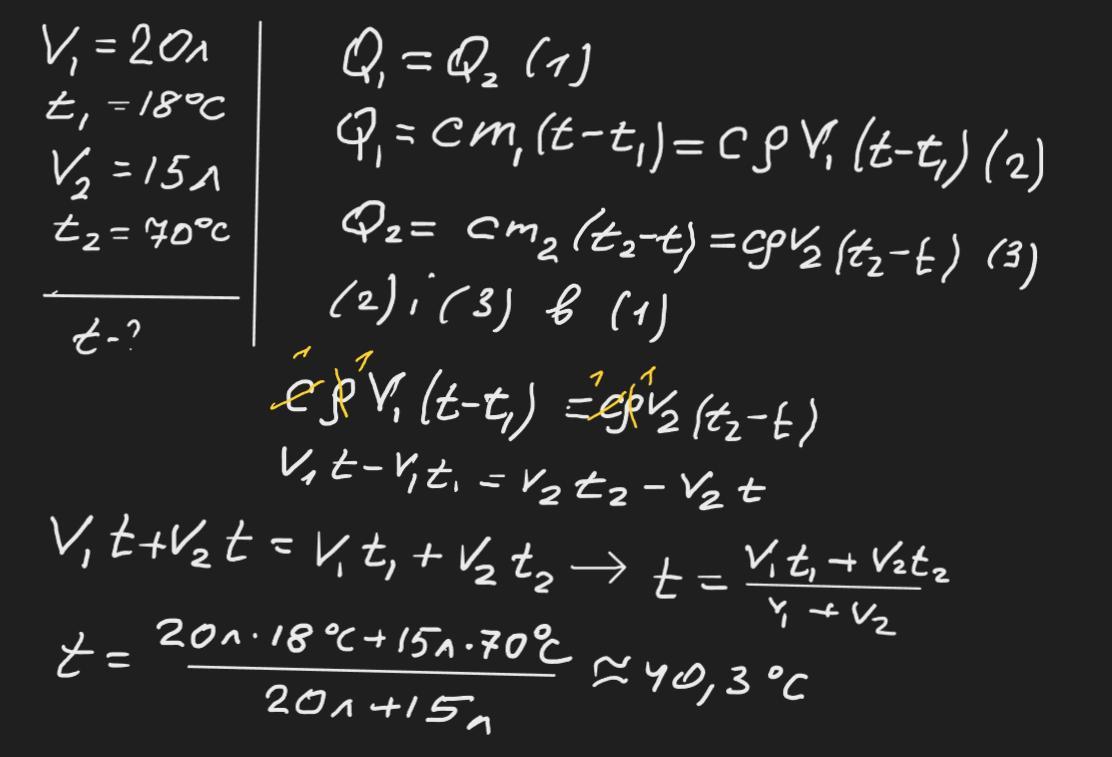 V₁ = 20л
t₁ = 18°C
V₂ = 15л
t₂ = 70°C
t - ?
Q₁ = Q₂ (1)
Q₁ = cm₁(t-t₁) = cρV₁(t-t₁) (2)
Q₂ = cm₂(t₂-t) = cρV₂(t₂-t) (3)
(2) і (3) в (1)
1 1 1 1
cρV₁(t-t₁) = cρV₂(t₂-t)
V₁t - V₁t₁ = V₂t₂ - V₂t
V₁t + V₂t = V₁t₁ + V₂t₂ → t = (V₁t₁ + V₂t₂)/(V₁ + V₂)
t = (20л·18°C + 15л·70°C)/(20л + 15л) ≈ 40,3°C